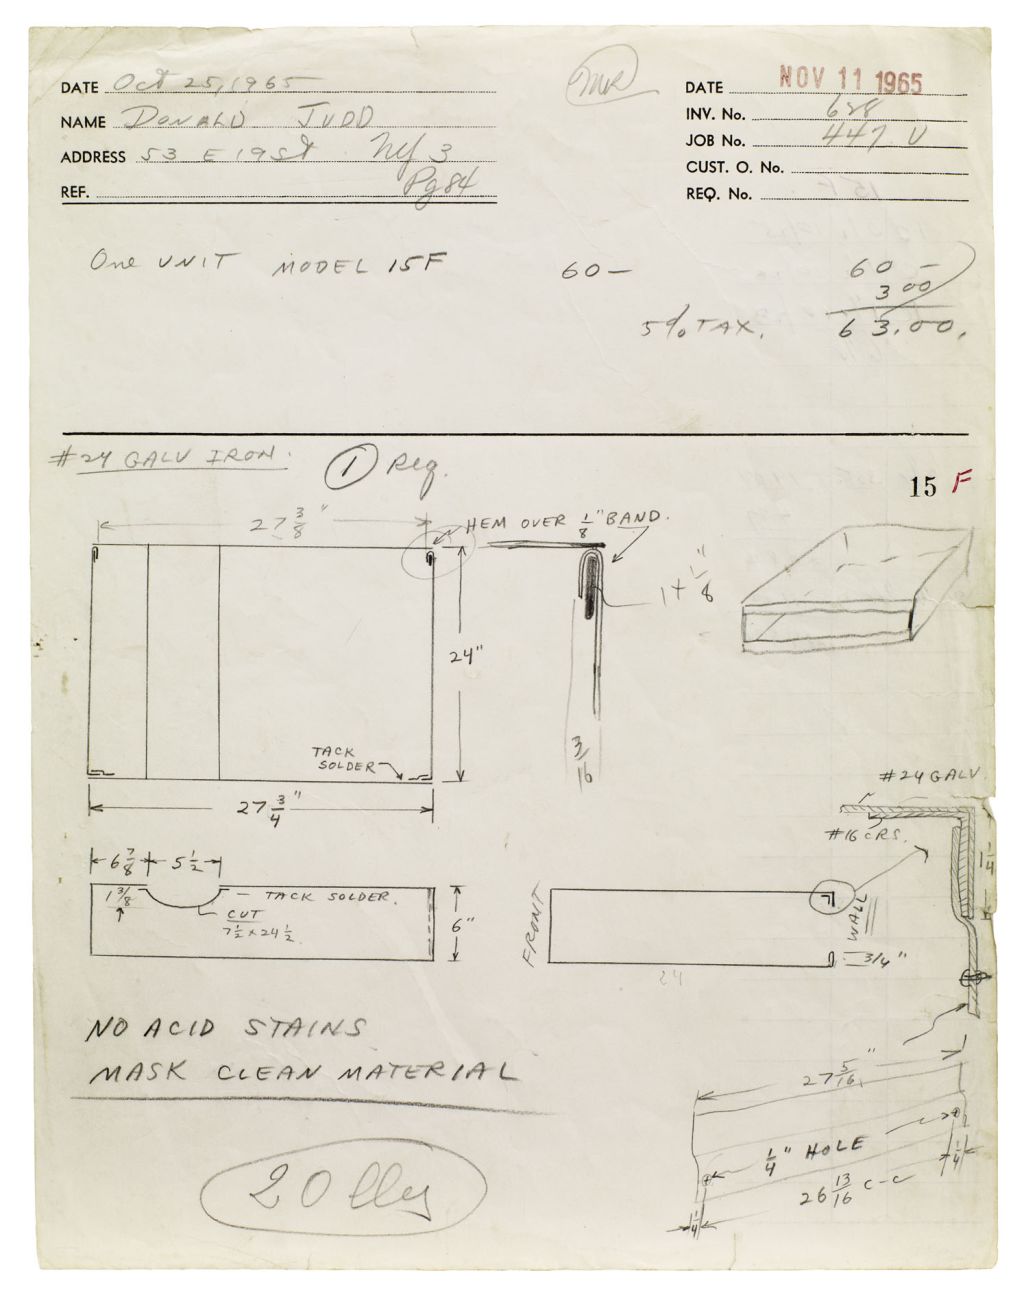 DATE Oct 25, 1965
NAME DONALD JUDD
ADDRESS 53 E 19 St NY 3
REF. Pg 84
DATE NOV 11 1965
INV. No. 628
JOB No. 447 U
CUST. O. No.
REQ. No.
One UNIT MODEL 15F 60— 60 —
3 00
5% TAX. 63.00.
#24 GALV IRON. 1 Req.
15 F
27 3/8"
HEM OVER 1/8" BAND.
1 + 1/8"
24"
TACK
SOLDER
3/16
27 3/4"
#24 GALV.
#16 CRS.
1 1/4
6 7/8 5 1/2
1 3/8 TACK SOLDER.
CUT
7 1/2 x 24 1/2
6"
FRONT
WALL
3/4"
24
NO ACID STAINS
MASK CLEAN MATERIAL
27 5/16"
1/4" HOLE
26 13/16 C-C
1/4
1/4
20